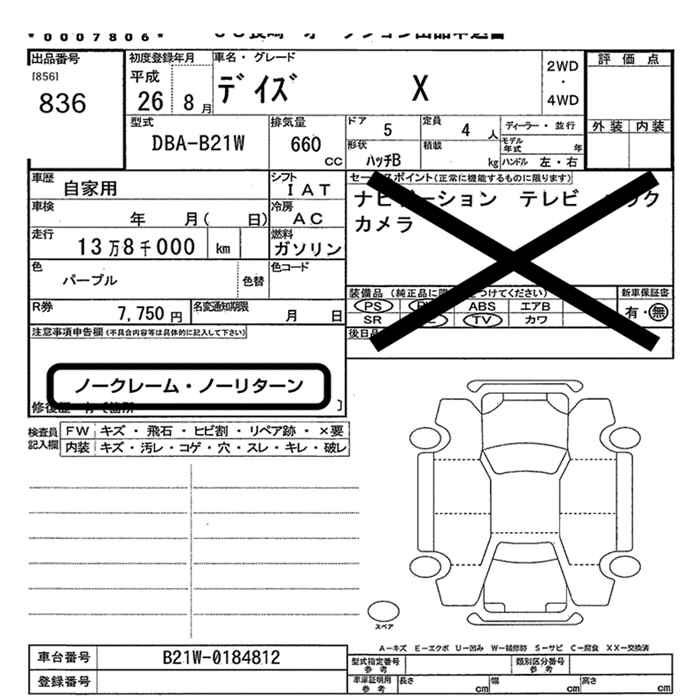 *0007806*
出品番号
[856]
836
初度登録年月
平成
26 8月
車名・グレード
デイズ X
2WD
・
4WD
評価点
外装 内装
型式
DBA-B21W
排気量
660
CC
ドア 5
定員 4 人
ディーラー・並行
形状
ハッチB
積載 kg
モデル年式 年
ハンドル 左・右
車歴 自家用
シフト IAT
車検 年 月( 日)
冷房 AC
走行 13万8千000 km
燃料 ガソリン
色 パープル
色替
色コード
R券 7,750円
名変通知期限 月 日
セールスポイント(正常に機能するものに限ります)
ナビゲーション テレビ バック
カメラ
装備品 (純正品に限
つけてください)
新車保証書
PS
ABS エアB
有・無
SR
TV カワ
後日品
注意事項申告欄(不具合内容等は具体的に記入して下さい)
ノークレーム・ノーリターン
検査員記入欄
FW キズ・飛石・ヒビ割・リペア跡・×要
内装 キズ・汚レ・コゲ・穴・スレ・キレ・破レ
スペア
A－キズ E－エクボ U－凹み W－補修跡 S－サビ C－腐食 XX－交換済
車台番号 B21W-0184812
登録番号
型式指定番号
参考
類別区分番号
参考
車庫証明用
参考
長さ cm
幅 cm
高さ cm